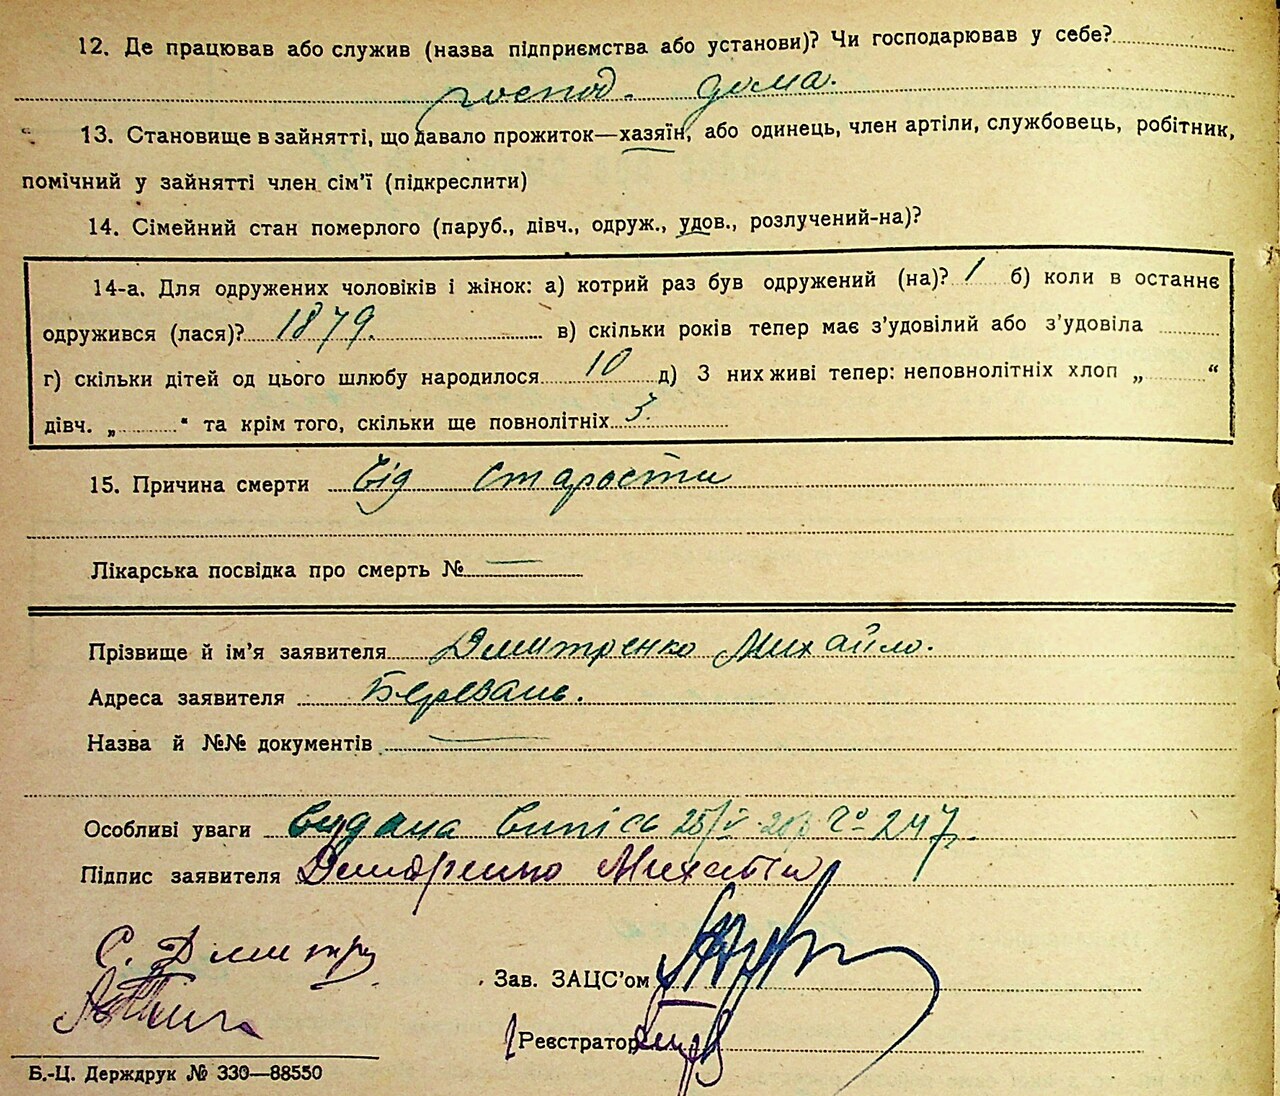 12. Де працював або служив (назва підприємства або установи)? Чи господарював у себе?
господ. дома.
13. Становище в зайнятті, що давало прожиток—хазяїн, або одинець, член артіли, службовець, робітник,
помічний у зайнятті член сім'ї (підкреслити)
14. Сімейний стан померлого (паруб., дівч., одруж., удов., розлучений-на)?
14-а. Для одружених чоловіків і жінок: а) котрий раз був одружений (на)? 1 б) коли в останнє
одружився (лася)? 1879. в) скільки років тепер має з'удовілий або з'удовіла
г) скільки дітей од цього шлюбу народилося 10 д) З них живі тепер: неповнолітніх хлоп „ “
дівч. „ “ та крім того, скільки ще повнолітніх 3.
15. Причина смерти Від старости
Лікарська посвідка про смерть № —
Прізвище й ім'я заявителя Дмитренко Михайло.
Адреса заявителя Березань.
Назва й №№ документів —
Особливі уваги видана випісь 25/V 247.
Підпис заявителя Дмитренко
С. Дмитр
Зав. ЗАЦС'ом
Реєстратор
Б.-Ц. Держдрук № 330—88550